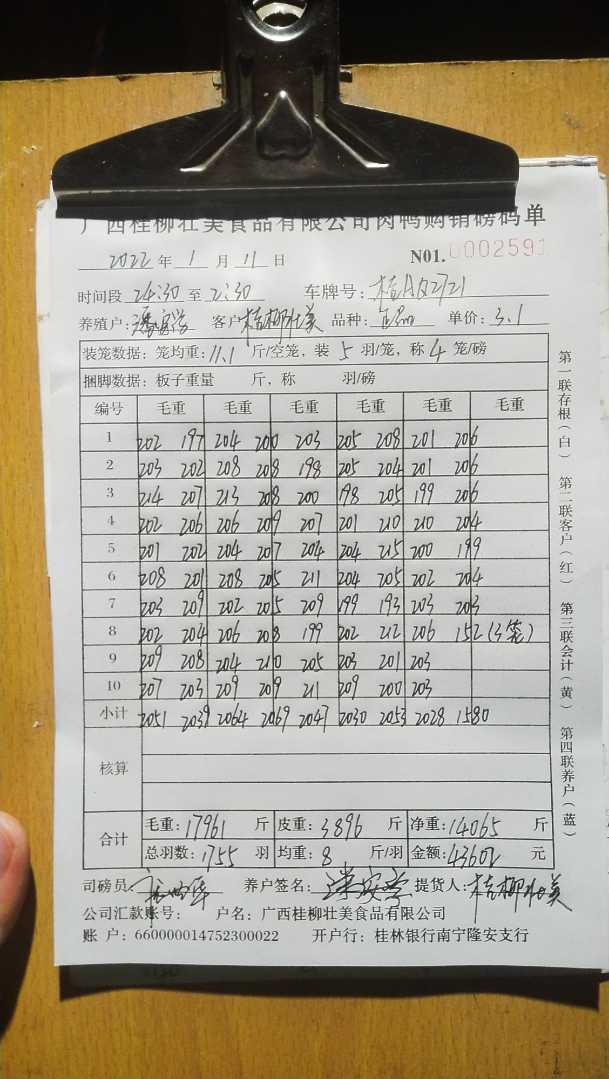 广西桂柳壮美食品有限公司肉鸭购销磅码单
2022 年 1 月 11 日 N01.0002591
时间段 24:30 至 2:30 车牌号: 桂A
养殖户: 客户 桂柳壮美 品种: 正品 单价: 3.1
装笼数据: 笼均重: 11.1 斤/空笼, 装 5 羽/笼, 称 4 笼/磅
捆脚数据: 板子重量 斤, 称 羽/磅
编号 毛重 毛重 毛重 毛重 毛重 毛重
1 202 197 204 200 203 205 208 201 206
2 203 202 208 208 198 205 204 201 206
3 214 207 213 208 200 198 205 199 206
4 202 206 206 209 207 201 210 210 204
5 201 202 204 207 204 204 215 200 199
6 208 201 208 205 211 204 205 202 204
7 203 209 202 205 209 199 193 203 203
8 202 204 206 208 199 202 212 206 152 (3笼)
9 209 208 204 210 205 203 201 203
10 207 203 209 209 211 209 200 203
小计 2051 2039 2064 2069 2047 2030 2053 2028 1580
核算
合计 毛重: 17961 斤 皮重: 3896 斤 净重: 14065 斤
总羽数: 1755 羽 均重: 8 斤/羽 金额: 43602 元
司磅员 养户签名: 提货人: 桂柳壮美
公司汇款账号: 户名: 广西桂柳壮美食品有限公司
账 户: 660000014752300022 开户行: 桂林银行南宁隆安支行
第一联存根(白) 第二联客户(红) 第三联会计(黄) 第四联养户(蓝)